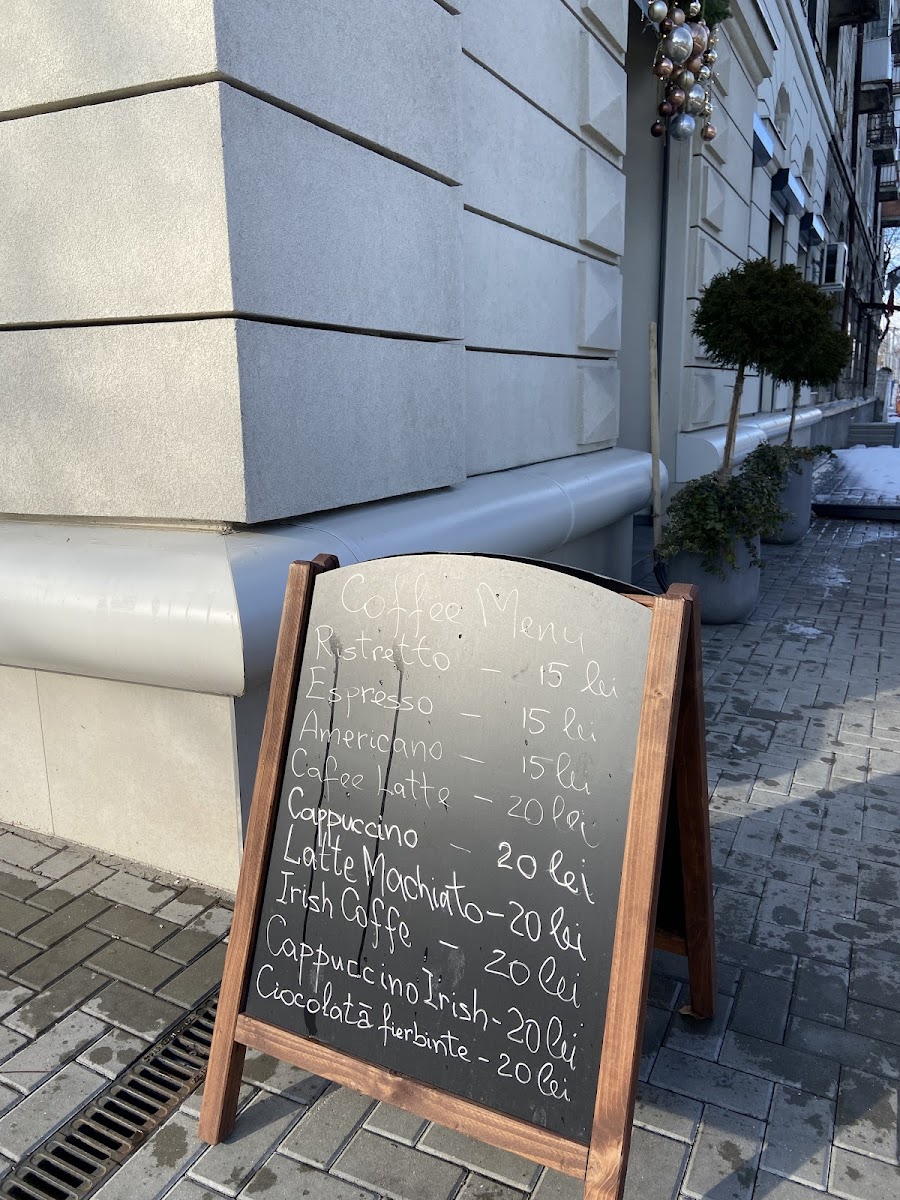 Coffee Menu
Ristretto - 15 lei
Espresso - 15 lei
Americano - 15 lei
Cafee Latte - 20 lei
Cappuccino - 20 lei
Latte Machiato - 20 lei
Irish Coffe - 20 lei
Cappuccino Irish - 20 lei
Ciocolată fierbinte - 20 lei